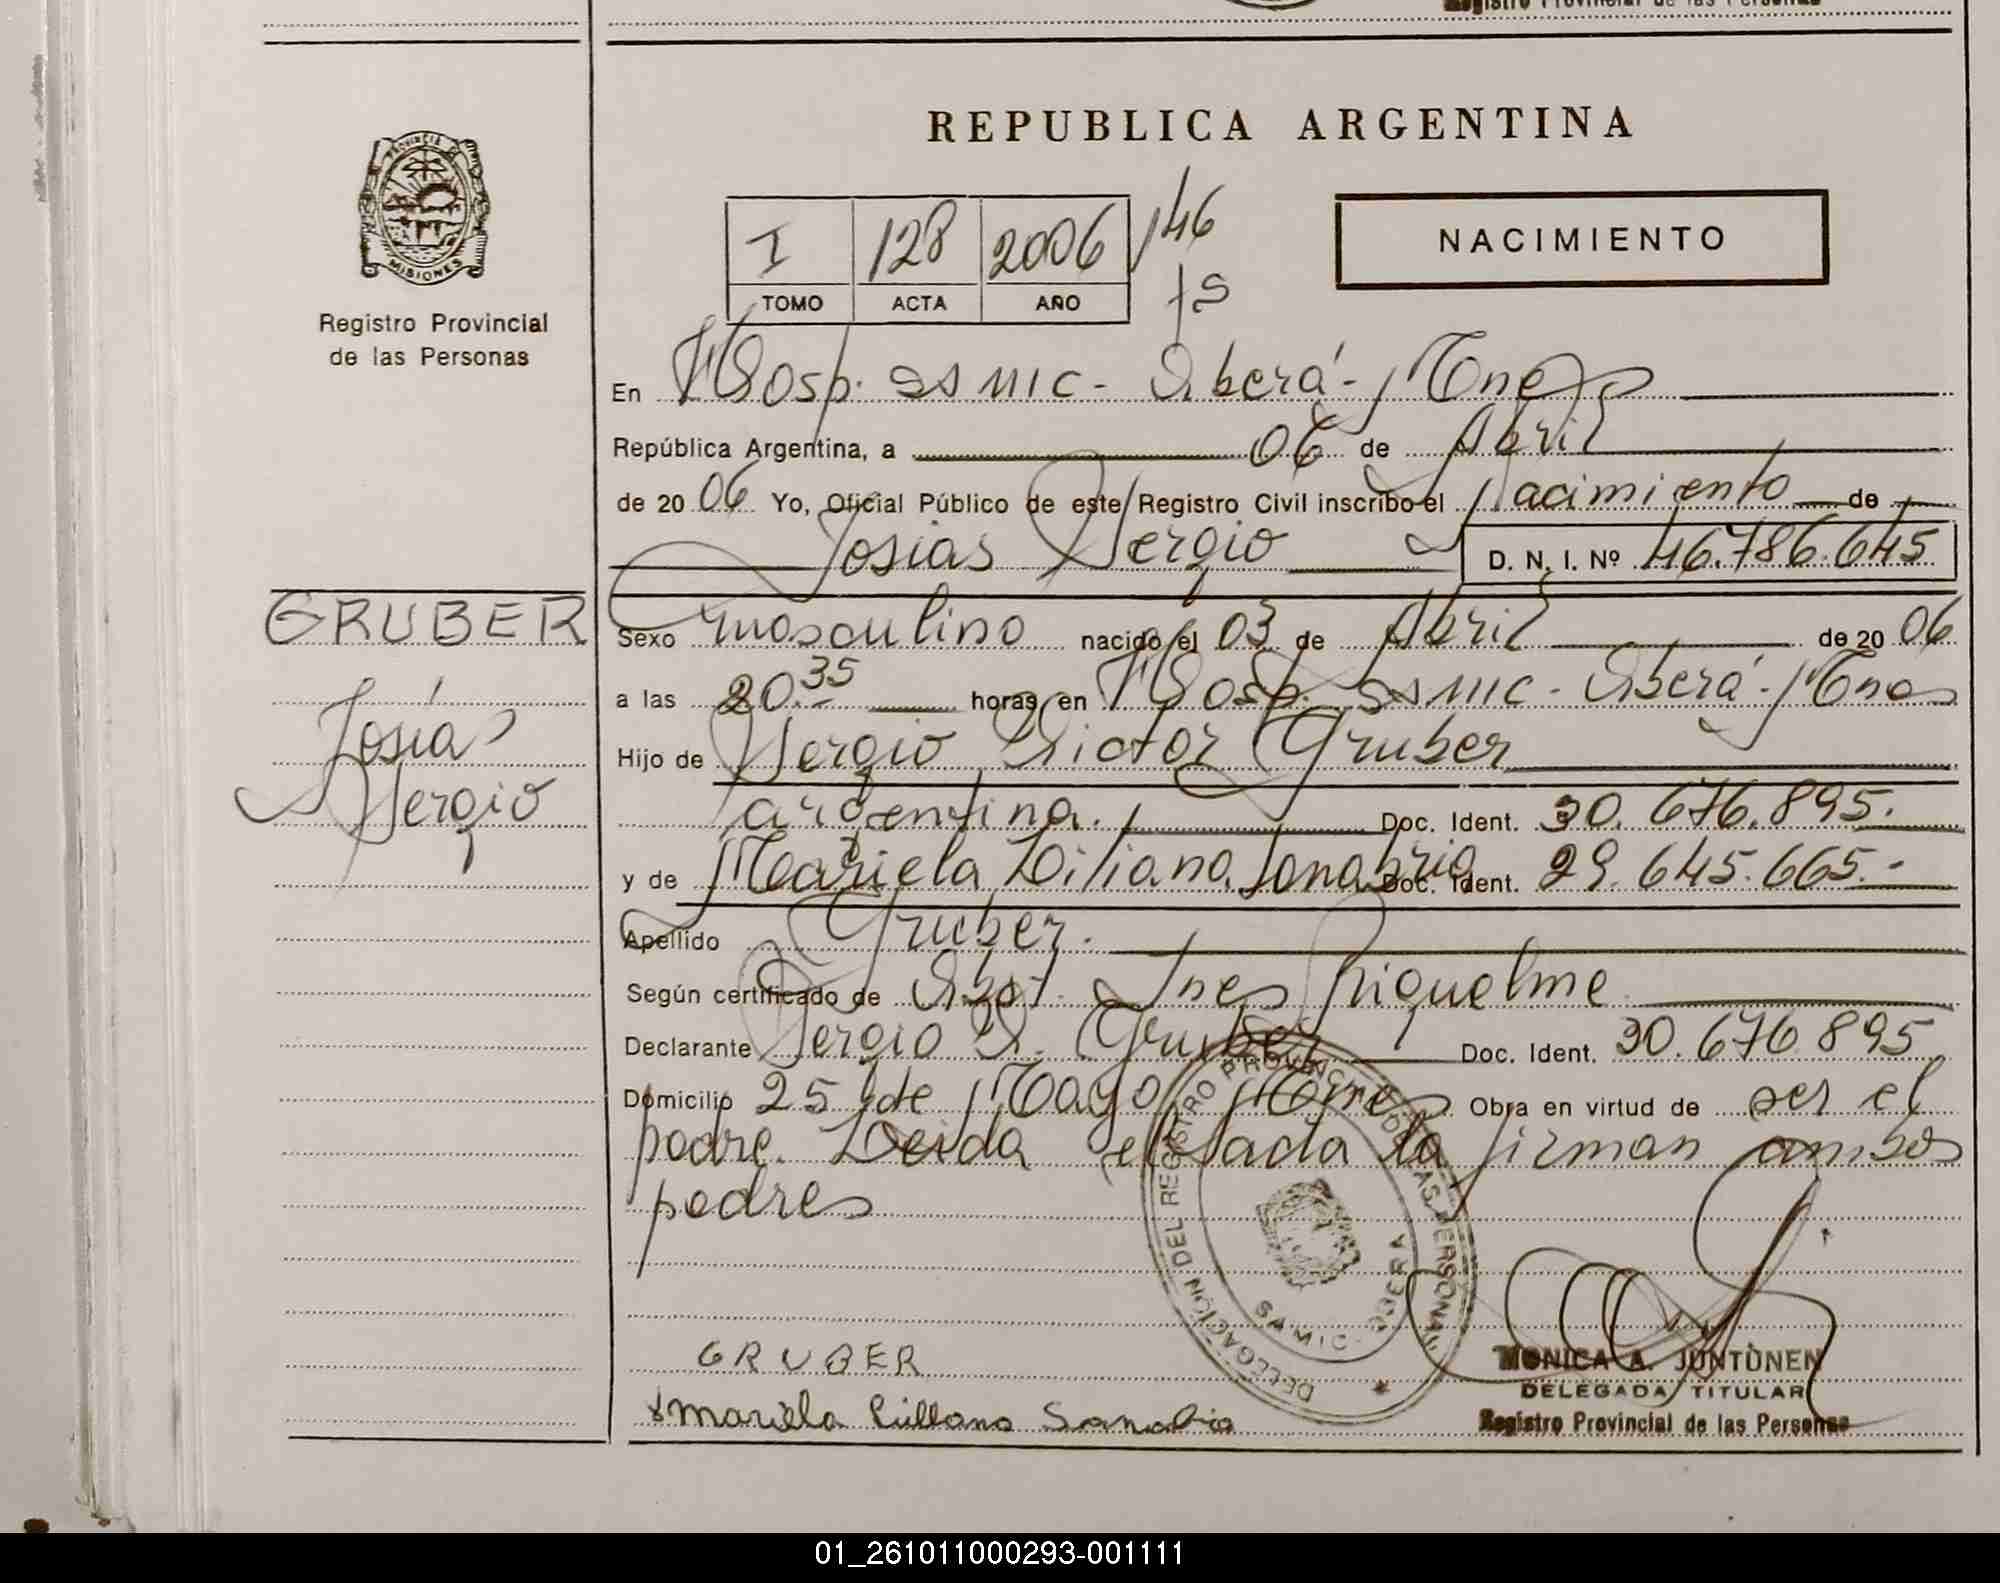 Registro Provincial de las Personas
REPUBLICA ARGENTINA
PROVINCIA DE
MISIONES
Registro Provincial
de las Personas
I 128 2006 146
TOMO ACTA AÑO fs
NACIMIENTO
En Hosp. SAMIC - Oberá - Mnes
República Argentina, a 06 de Abril
de 20 06 Yo, Oficial Público de este Registro Civil inscribo el Nacimiento de
Josias Sergio D. N. I. Nº 46.786.645
GRUBER
Josias
Sergio
Sexo masculino nacido el 03 de Abril de 20 06
a las 20.35 horas en Hosp. SAMIC - Oberá - Mnes
Hijo de Sergio Victor Gruber
argentina. Doc. Ident. 30.676.895.
y de Mariela Liliana Sanabria Doc. Ident. 29.645.665.-
Apellido Gruber.
Según certificado de Obst. Ines Riquelme
Declarante Sergio V. Gruber Doc. Ident. 30.676.895
Domicilio 25 de Mayo Mnes Obra en virtud de ser el
padre. Leida el acta la firman ambos
padres
DELEGACION DEL REGISTRO PROVINCIAL DE LAS PERSONAS
SAMIC - OBERA
GRUBER
Mariela Liliana Sanabria
MONICA A. JUNTUNEN
DELEGADA TITULAR
Registro Provincial de las Personas
01_261011000293-001111